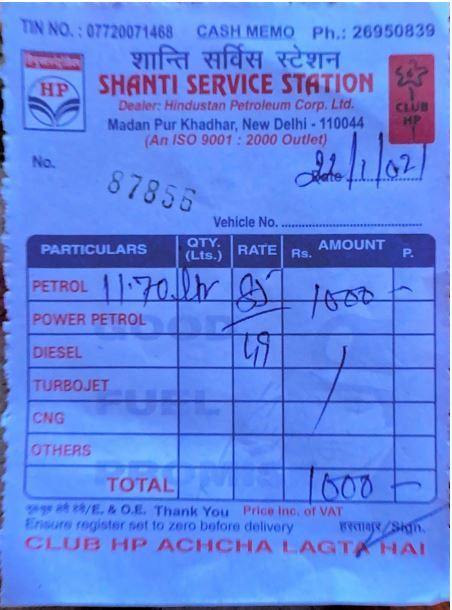 TIN NO. : 07720071468 CASH MEMO Ph.: 26950839
हिन्दुस्तान पेट्रोलियम
HP
शान्ति सर्विस स्टेशन
SHANTI SERVICE STATION
Dealer: Hindustan Petroleum Corp. Ltd.
Madan Pur Khadhar, New Delhi - 110044
(An ISO 9001 : 2000 Outlet)
CLUB
HP
No. 87856
Date 22/1/021
Vehicle No.
PARTICULARS QTY. (Lts.) RATE Rs. AMOUNT P.
PETROL 11.70 ltr 85 1000 —
POWER PETROL
DIESEL 49
TURBOJET
CNG
OTHERS
GOOD
FUEL
PROMISE
TOTAL 1000 —
/E. & O.E. Thank You Price Inc. of VAT
Ensure register set to zero before delivery हस्ताक्षर/Sign.
CLUB HP ACHCHA LAGTA HAI